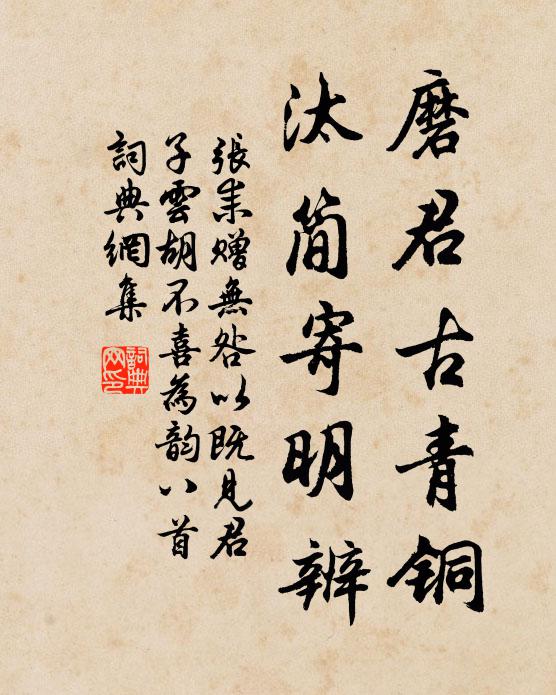 磨君古青铜
汰简寄明辨
張耒赠無咎以既見君
子雲胡不喜為韵八首
詞典網集
詞典網印